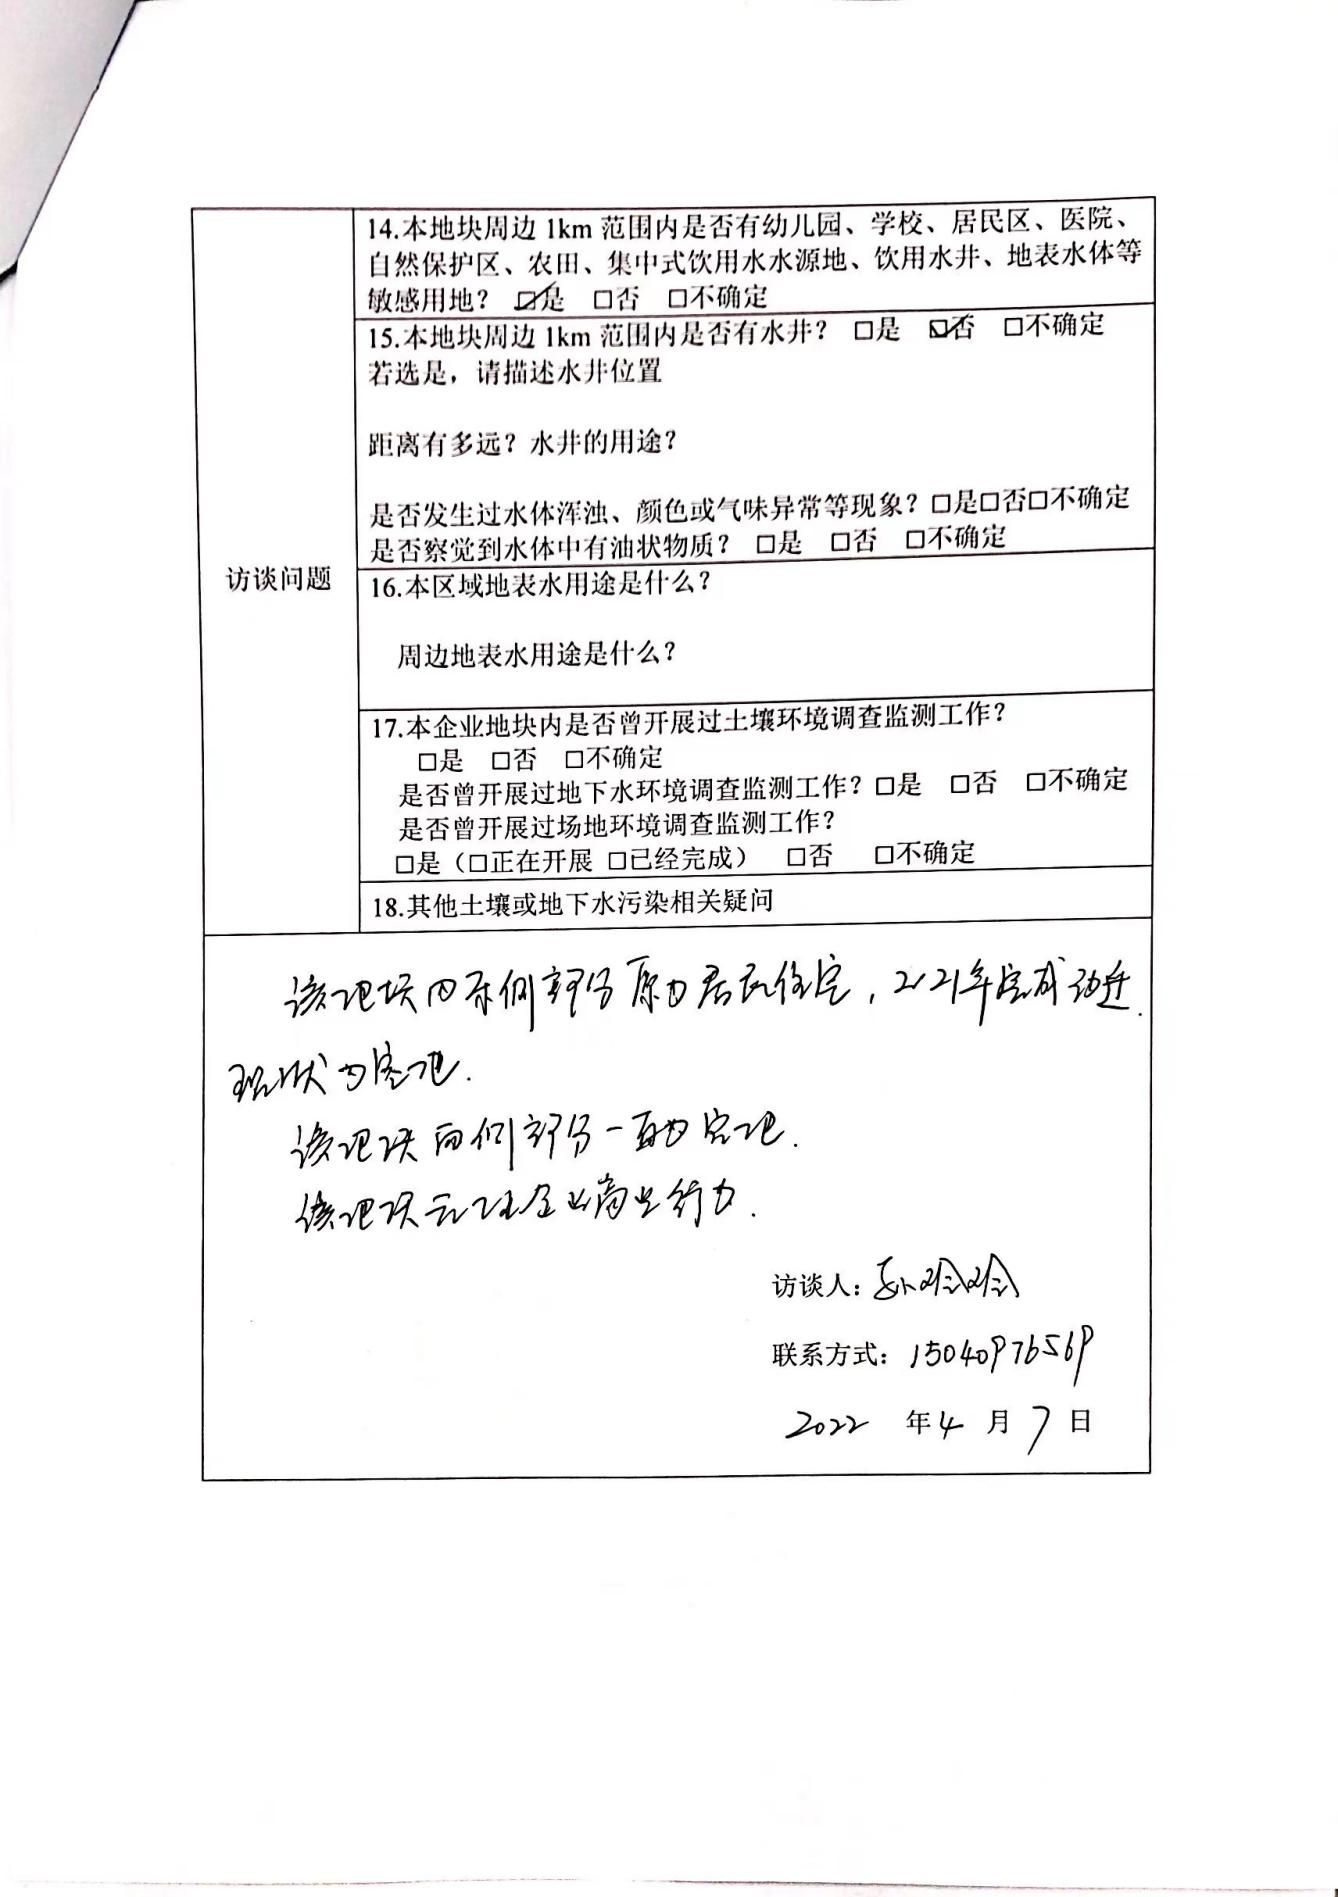 14.本地块周边 1km 范围内是否有幼儿园、学校、居民区、医院、
自然保护区、农田、集中式饮用水水源地、饮用水井、地表水体等
敏感用地？ ☑是 □否 □不确定
15.本地块周边 1km 范围内是否有水井？ □是 ☑否 □不确定
若选是，请描述水井位置
距离有多远？水井的用途？
是否发生过水体浑浊、颜色或气味异常等现象？□是□否□不确定
是否察觉到水体中有油状物质？ □是 □否 □不确定
访谈问题
16.本区域地表水用途是什么？
周边地表水用途是什么？
17.本企业地块内是否曾开展过土壤环境调查监测工作？
□是 □否 □不确定
是否曾开展过地下水环境调查监测工作？□是 □否 □不确定
是否曾开展过场地环境调查监测工作？
□是（□正在开展 □已经完成） □否 □不确定
18.其他土壤或地下水污染相关疑问
该地块内东侧部分原为居民住宅，2021年完成动迁.
现状为空地.
该地块西侧部分一直为空地.
该地块无任企业商业行为.
访谈人：
联系方式：15040976569
2022 年 4 月 7 日